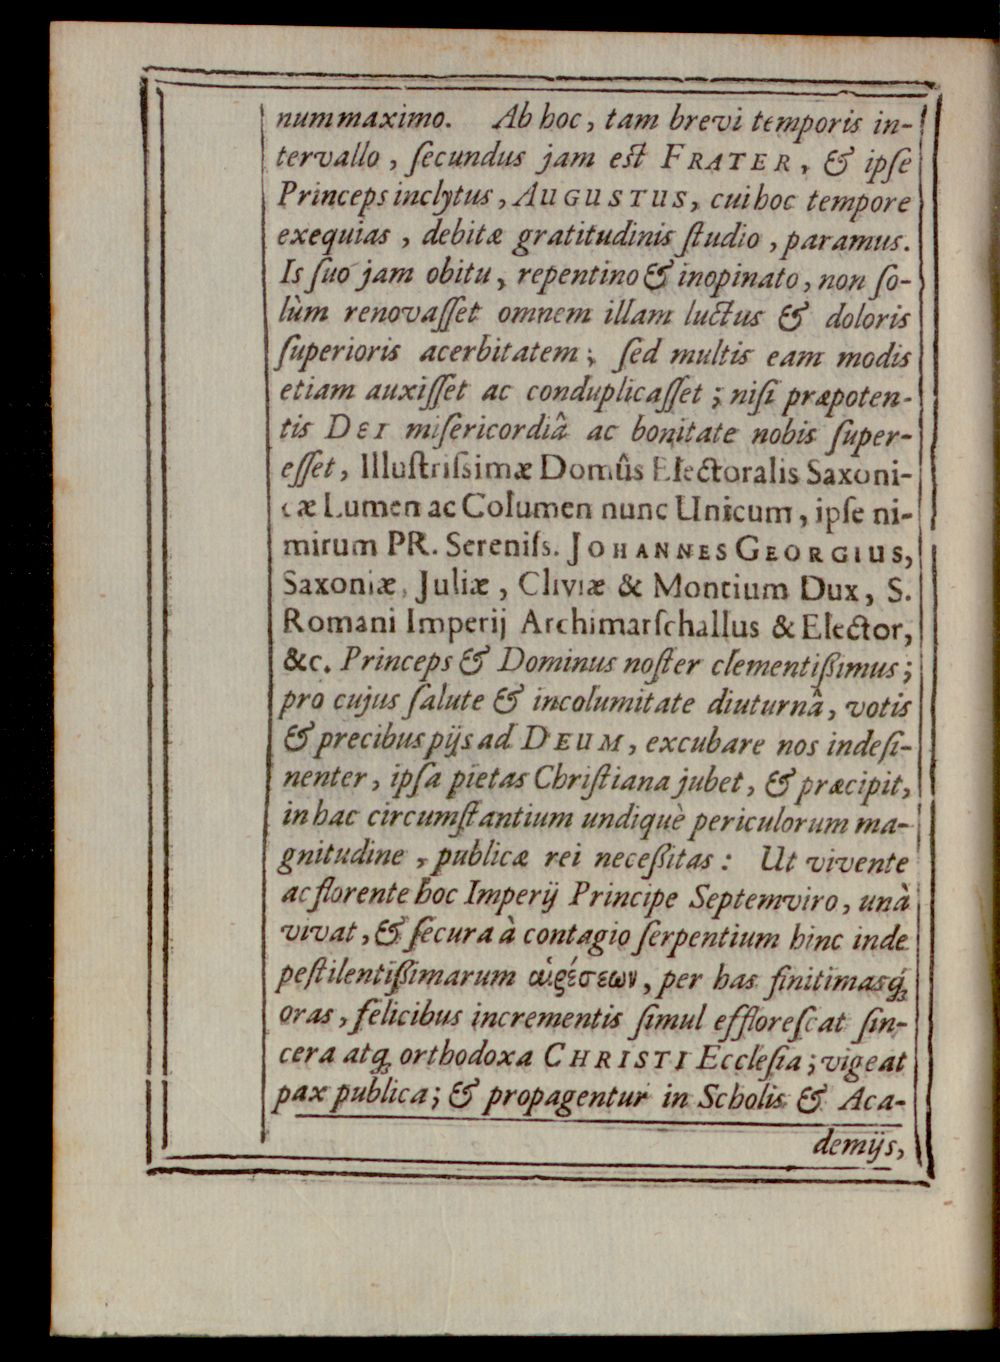 num maximo. Ab hoc, tam brevi temporis in-
tervallo, ſecundus jam eſt FRATER, & ipſe
Princeps inclytus, AUGUSTUS, cui hoc tempore
exequias, debitæ gratitudinis ſtudio, paramus.
Is ſuo jam obitu, repentino & inopinato, non ſo-
lùm renovaſſet omnem illam luctus & doloris
ſuperioris acerbitatem; ſed multis eam modis
etiam auxiſſet ac conduplicaſſet; niſi præpoten-
tis DEI miſericordiâ ac bonitate nobis ſuper-
eſſet, Illuſtriſsimæ Domûs Electoralis Saxoni-
cæ Lumen ac Columen nunc Unicum, ipſe ni-
mirum PR. Sereniſs. JOHANNES GEORGIUS,
Saxoniæ, Juliæ, Cliviæ & Montium Dux, S.
Romani Imperij Archimarſchallus & Elector,
&c. Princeps & Dominus noſter clementißimus;
pro cujus ſalute & incolumitate diuturnâ, votis
& precibus pijs ad DEUM, excubare nos indeſi-
nenter, ipſa pietas Chriſtiana jubet, & præcipit,
in hac circumſtantium undiquè periculorum ma-
gnitudine, publicæ rei neceßitas: Ut vivente
ac florente hoc Imperij Principe Septemviro, unà
vivat, & ſecura à contagio ſerpentium hinc inde
peſtilentißimarum αἱρέσεων, per has finitimasq́;
oras, felicibus incrementis ſimul effloreſcat ſin-
cera atq; orthodoxa CHRISTI Eccleſia; vigeat
pax publica; & propagentur in Scholis & Aca-
demijs,